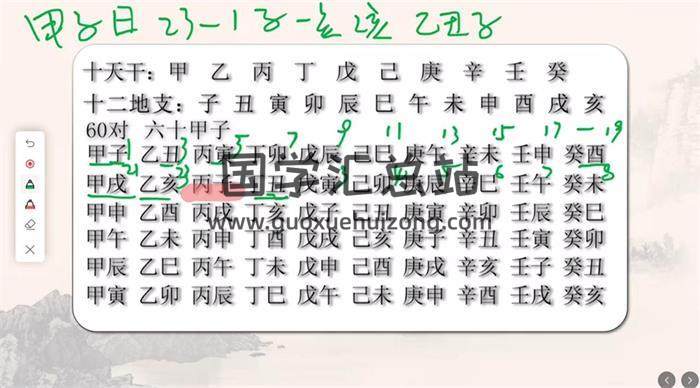 甲子日 23-1子-亥 2亥 乙丑子
十天干：甲 乙 丙 丁 戊 己 庚 辛 壬 癸
十二地支：子 丑 寅 卯 辰 巳 午 未 申 酉 戌 亥
60对 六十甲子
1 3 5 7 9 11 13 15 17 19
甲子 乙丑 丙寅 丁卯 戊辰 己巳 庚午 辛未 壬申 癸酉
甲戌 乙亥 丙 丁丑 戊寅 己卯 庚辰 辛巳 壬午 癸未
国学汇总站
甲申 乙酉 丙戌 丁亥 戊子 己丑 庚寅 辛卯 壬辰 癸巳
www.guoxuehuizong.com
甲午 乙未 丙申 丁酉 戊戌 己亥 庚子 辛丑 壬寅 癸卯
甲辰 乙巳 丙午 丁未 戊申 己酉 庚戌 辛亥 壬子 癸丑
甲寅 乙卯 丙辰 丁巳 戊午 己未 庚申 辛酉 壬戌 癸亥